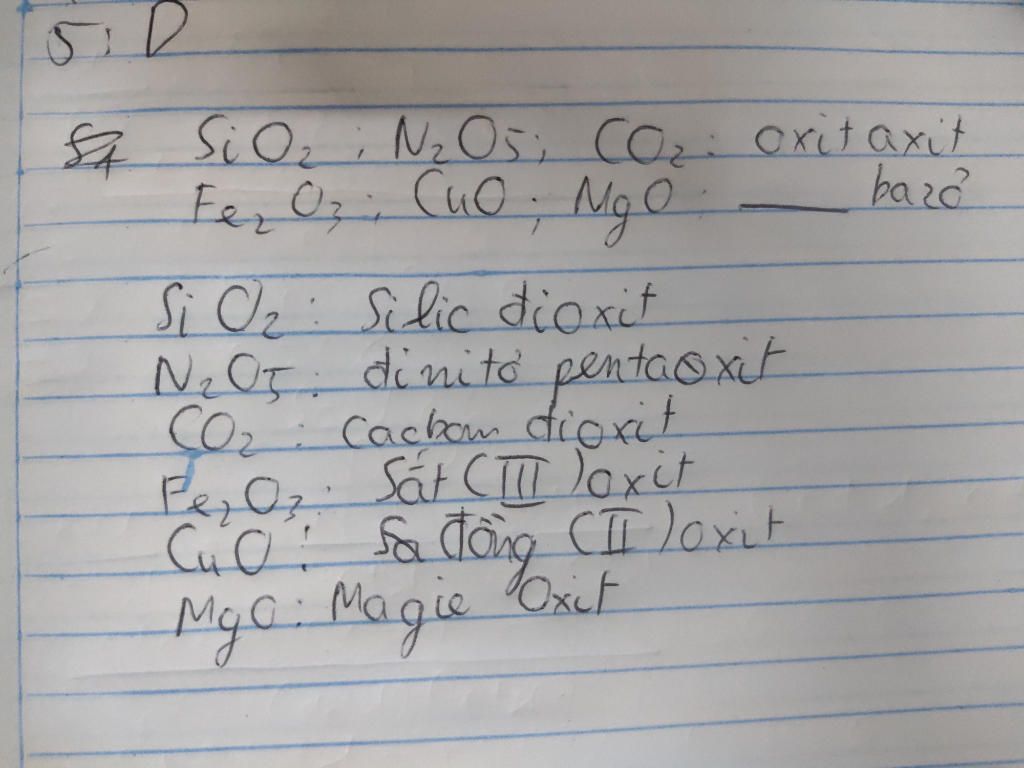 5: D
SiO2; N2O5; CO2: oxit axit
Fe2O3; CuO; MgO: ____ bazơ
SiO2: Silic đioxit
N2O5: đinitơ pentaoxit
CO2: cacbon đioxit
Fe2O3: Sắt (III) oxit
CuO: đồng (II) oxit
MgO: Magie Oxit